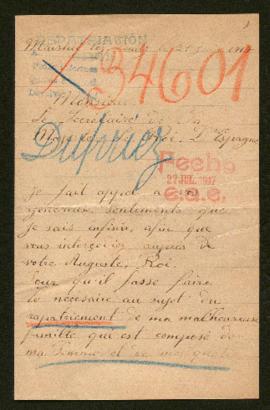 REPATRIACIÓN
34601
Monsieur
Le Secrétaire de Sa
Majesté Le Roi D'Espagne
Dupriez
Fecho
27 JUL. 1917
Je fait appel a
généreux sentiments que
je sais infinis, afin que
vous intercédiez auprès de
votre Auguste Roi
Pour qu'il fasse faire
le nécessaire au sujet du
rapatriement de ma malheureuse
famille qui est composé de
ma femme et